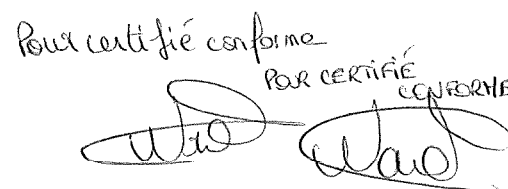 Pour certifié conforme
POUR CERTIFIÉ
CONFORME